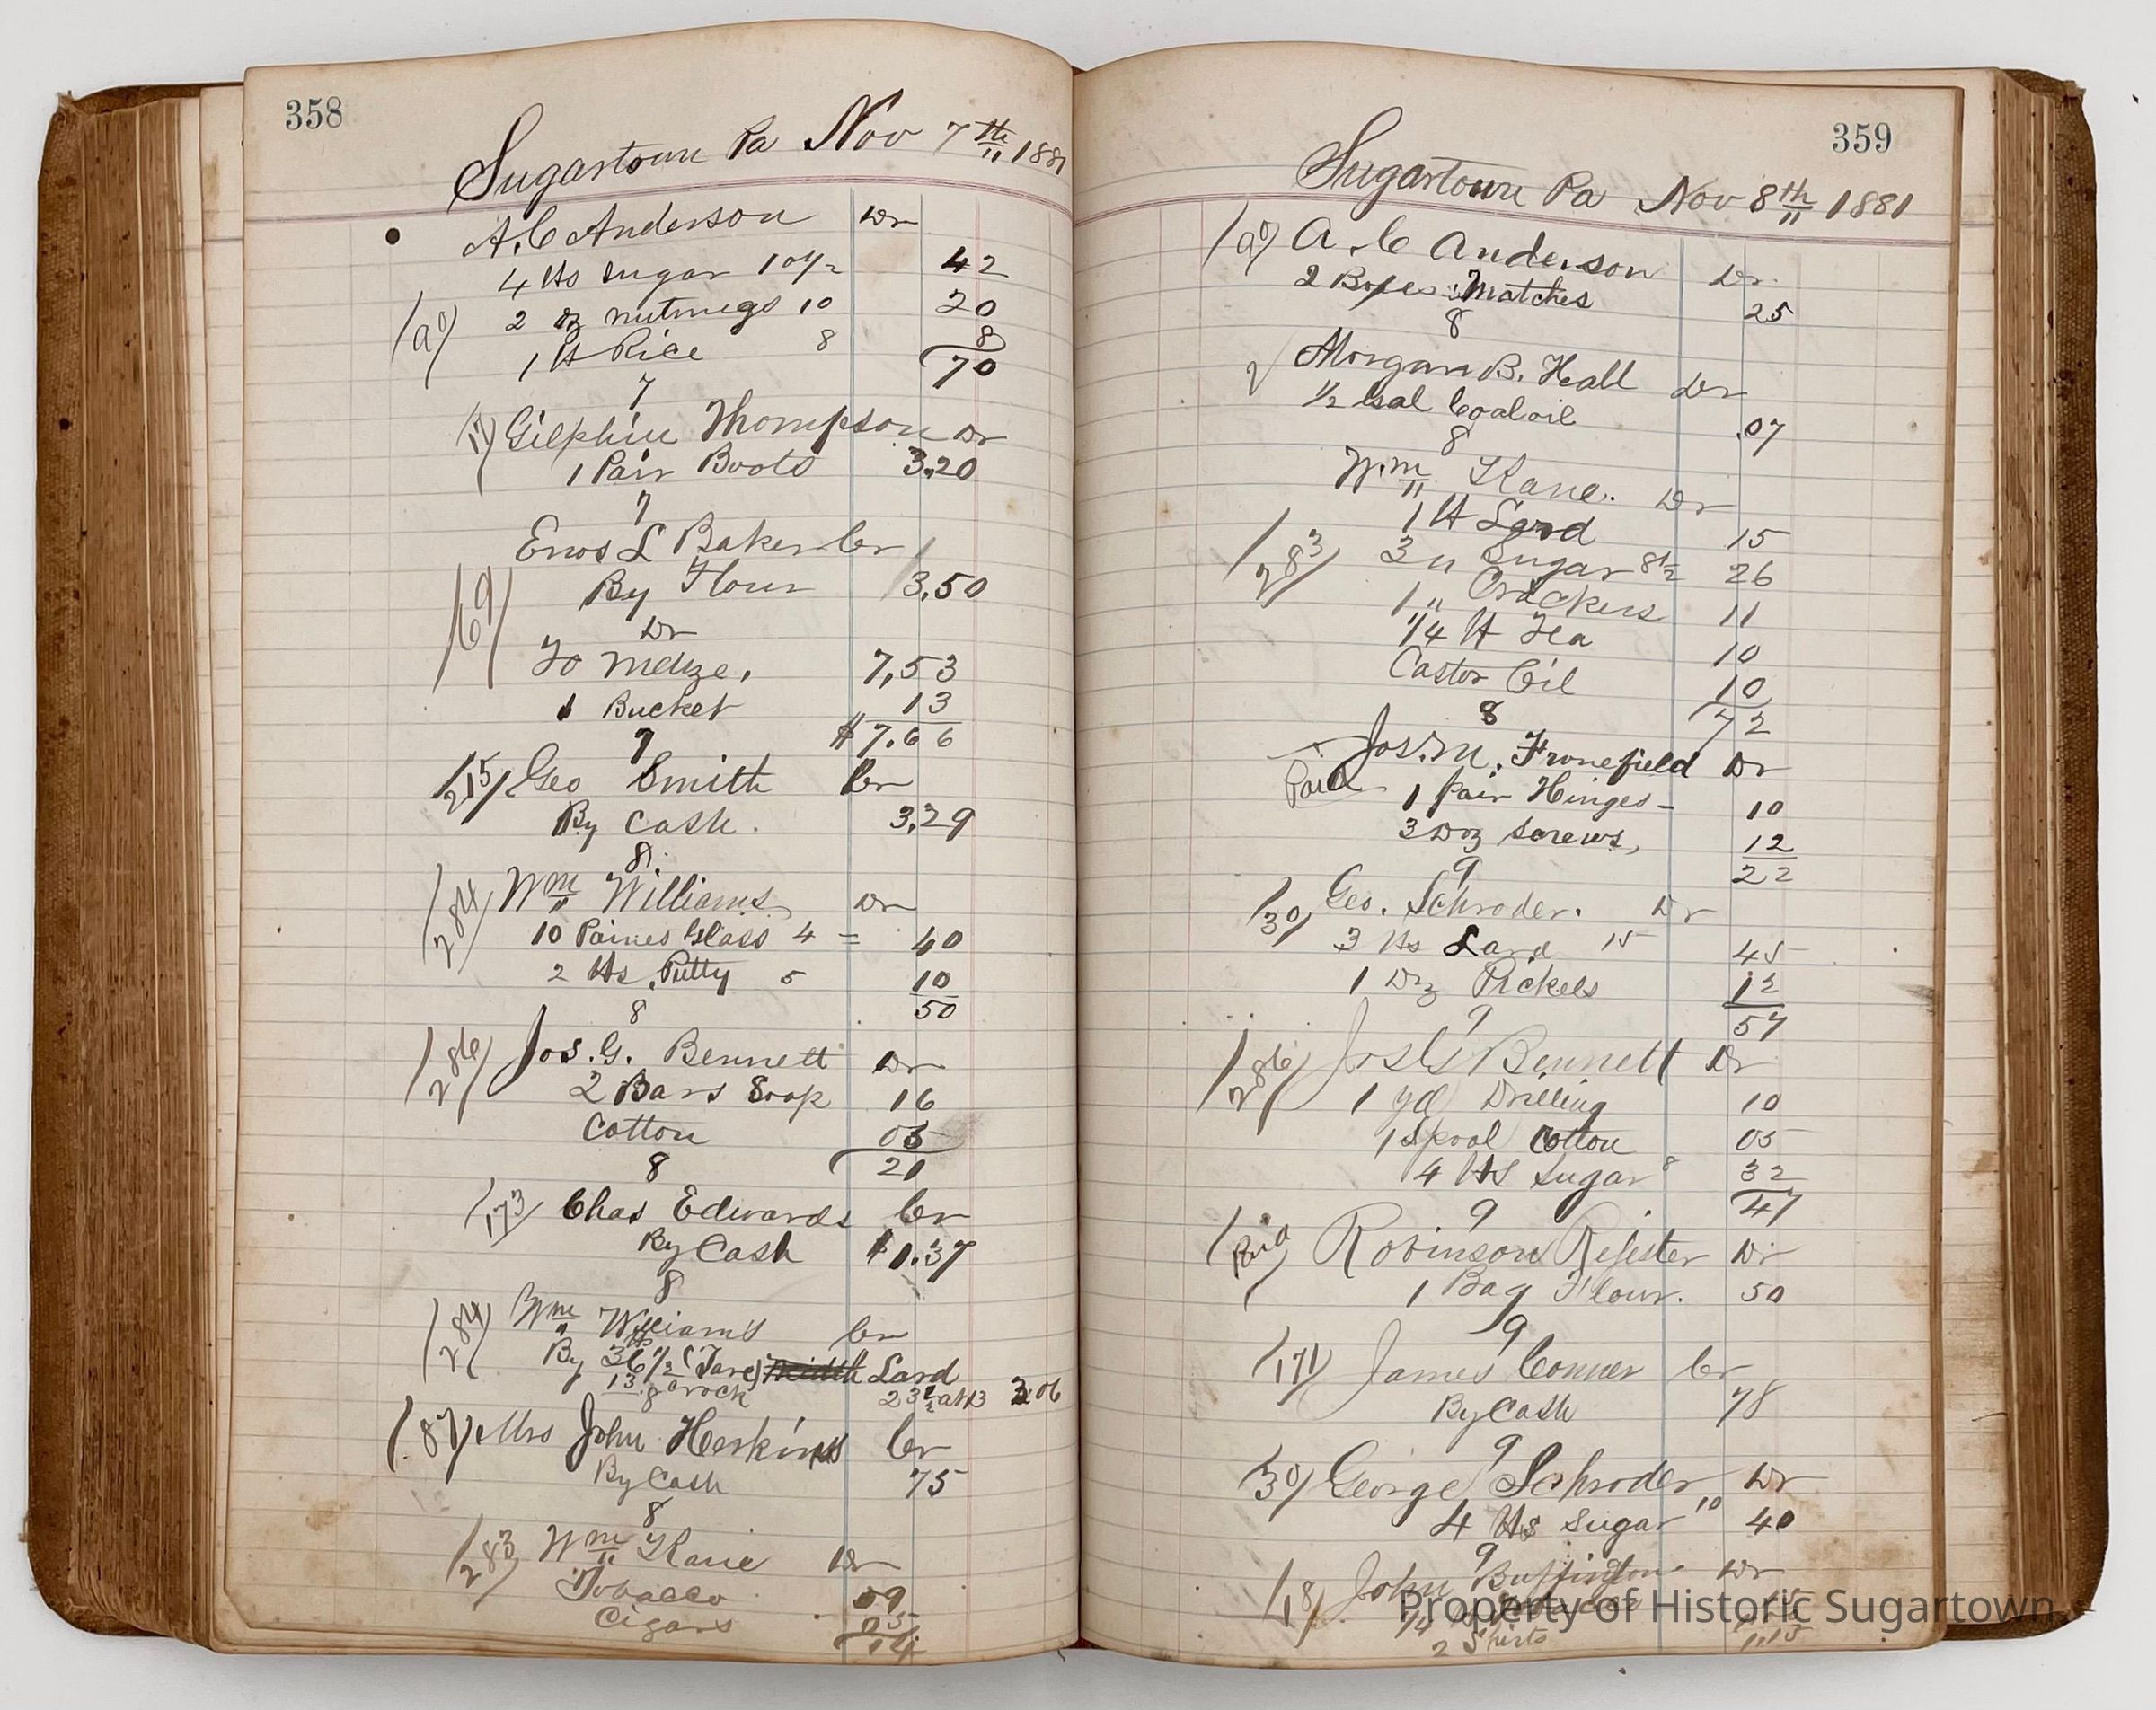 358
Sugartown Pa Nov 7th 1881
A. C Anderson Dr
4 lbs Sugar 10 1/2 42
2 oz nutmegs 10 20
1 lb Rice 8 8
70
7
17 Gilphin Thompson Dr
1 Pair Boots 3.20
7
Enos L Baker Cr
69 By Flour 3.50
Dr
To Mdze. 7,53
1 Bucket 13
7 $7.66
215 Geo Smith Cr
By Cash. 3.29
8
284 Wm Williams Dr
10 Paines Glass 4 = 40
2 lbs. Putty 5 10
8 50
286 Jos. G. Bennett Dr
2 Bars Soap 16
Cotton 05
8 21
173 Chas Edwards Cr
By Cash $1.37
8
284 Wm Williams Cr
By 36 1/2 (Tare) Lard
13 crock 23 1/2 at 13 3.06
87 Mrs John Herskins Cr
By Cash 75
8
283 Wm Kane Dr
Tobacco 09
Cigars 05
14
359
Sugartown Pa Nov 8th 1881
A. C Anderson Dr.
2 Boxes Matches 25
8
Morgan B. Hall Dr
1/2 Gal Coal oil .07
8
Wm Kane. Dr
1 lb Lard 15
283 3 " Sugar 8 1/2 26
1 " Crackers 11
1/4 lb Tea 10
Castor Oil 10
8 72
Jos. M. Fronefield Dr
Paid 1 Pair Hinges - 10
3 Doz Screws, 12
9 22
30 Geo. Schroder. Dr
3 lbs Lard 15 45
1 Dz Pickels 12
9 57
286 Jos G Bennett Dr
1 yd Drilling 10
1 Spool Cotton 05
4 lbs Sugar 8 32
9 47
Paid Robinson Rejester Dr
1 Bag Flour. 50
9
171 James Conner Cr
By Cash 78
9
30 George Schroder Dr
4 lbs Sugar 10 40
9
18 John Buffington Dr
1/4
2 Shirts 1.13
Property of Historic Sugartown